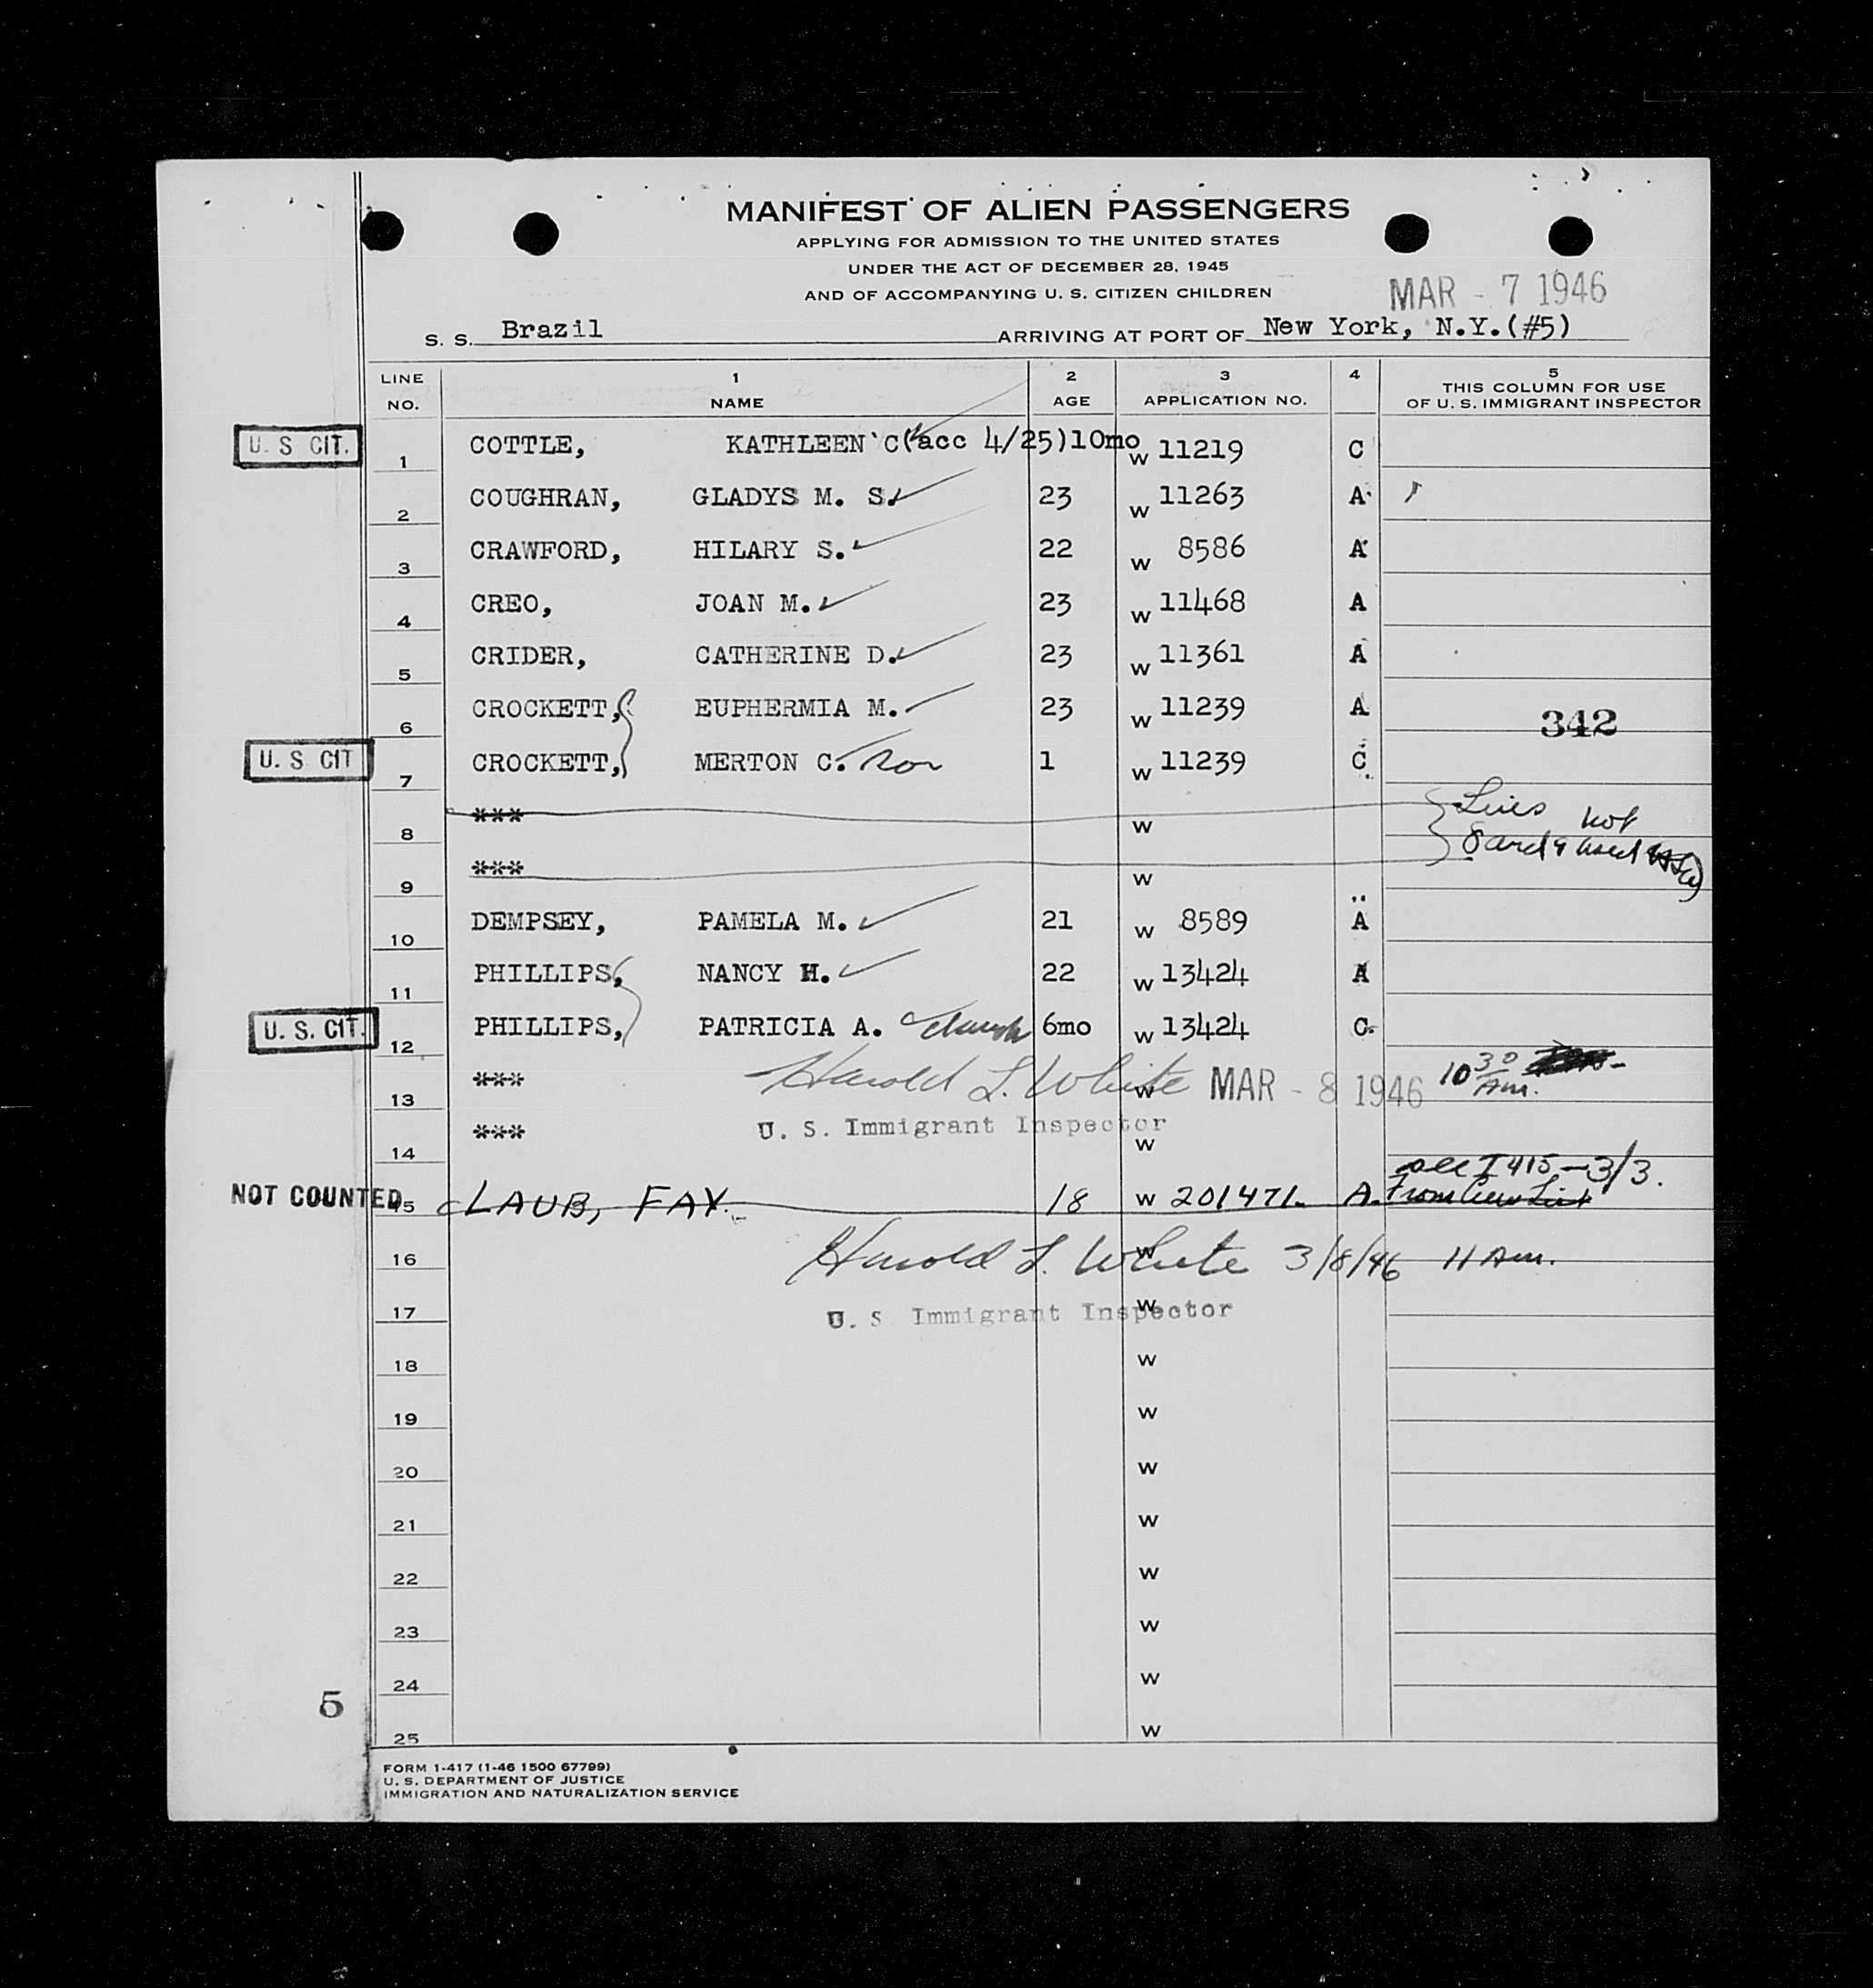 MANIFEST OF ALIEN PASSENGERS
APPLYING FOR ADMISSION TO THE UNITED STATES
UNDER THE ACT OF DECEMBER 28, 1945
AND OF ACCOMPANYING U. S. CITIZEN CHILDREN
MAR - 7 1946
S. S. Brazil ARRIVING AT PORT OF New York, N.Y.(#5)
LINE NO. 1 NAME 2 AGE 3 APPLICATION NO. 4 5 THIS COLUMN FOR USE OF U. S. IMMIGRANT INSPECTOR
U. S CIT. 1 COTTLE, KATHLEEN C(acc 4/25)10mo W 11219 C
2 COUGHRAN, GLADYS M. S. 23 W 11263 A
3 CRAWFORD, HILARY S. 22 W 8586 A
4 CREO, JOAN M. 23 W 11468 A
5 CRIDER, CATHERINE D. 23 W 11361 A
6 CROCKETT, EUPHERMIA M. 23 W 11239 A 342
U. S CIT 7 CROCKETT, MERTON C. Son 1 W 11239 C
8 *** W Lines not
9 *** W 8 and 9 used
10 DEMPSEY, PAMELA M. 21 W 8589 A
11 PHILLIPS, NANCY H. 22 W 13424 A
U. S. CIT. 12 PHILLIPS, PATRICIA A. 6mo W 13424 C
13 *** Harold L. White W MAR - 8 1946 10 30 Am.
14 *** U. S. Immigrant Inspector W
see I 415-3/3.
NOT COUNTED 15 LAUB, FAY. 18 W 201471 A. From Crew List
16 Harold L. White W 3/8/46 11 Am.
17 U. S Immigrant Inspector W
18 W
19 W
20 W
21 W
22 W
23 W
24 W
5
25 W
FORM 1-417 (1-46 1500 67799)
U. S. DEPARTMENT OF JUSTICE
IMMIGRATION AND NATURALIZATION SERVICE